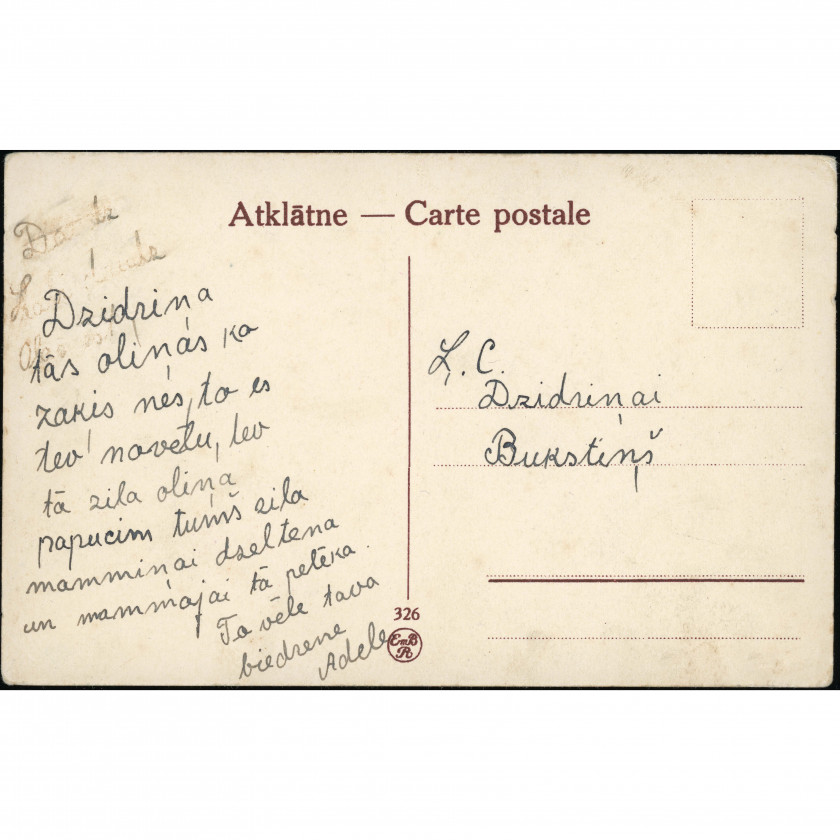 Atklātne — Carte postale
Dzidriņa
tās oliņās ko
zaķis nes, to es
tev novēlu, tev
tā zila oliņa
papucim tumš zila
mammiņai dzeltena
un mammājai tā pelēka.
To vēle tava
biedrene
Adele
Ļ. C.
Dzidriņai
Bukstiņš
326
EmB
R